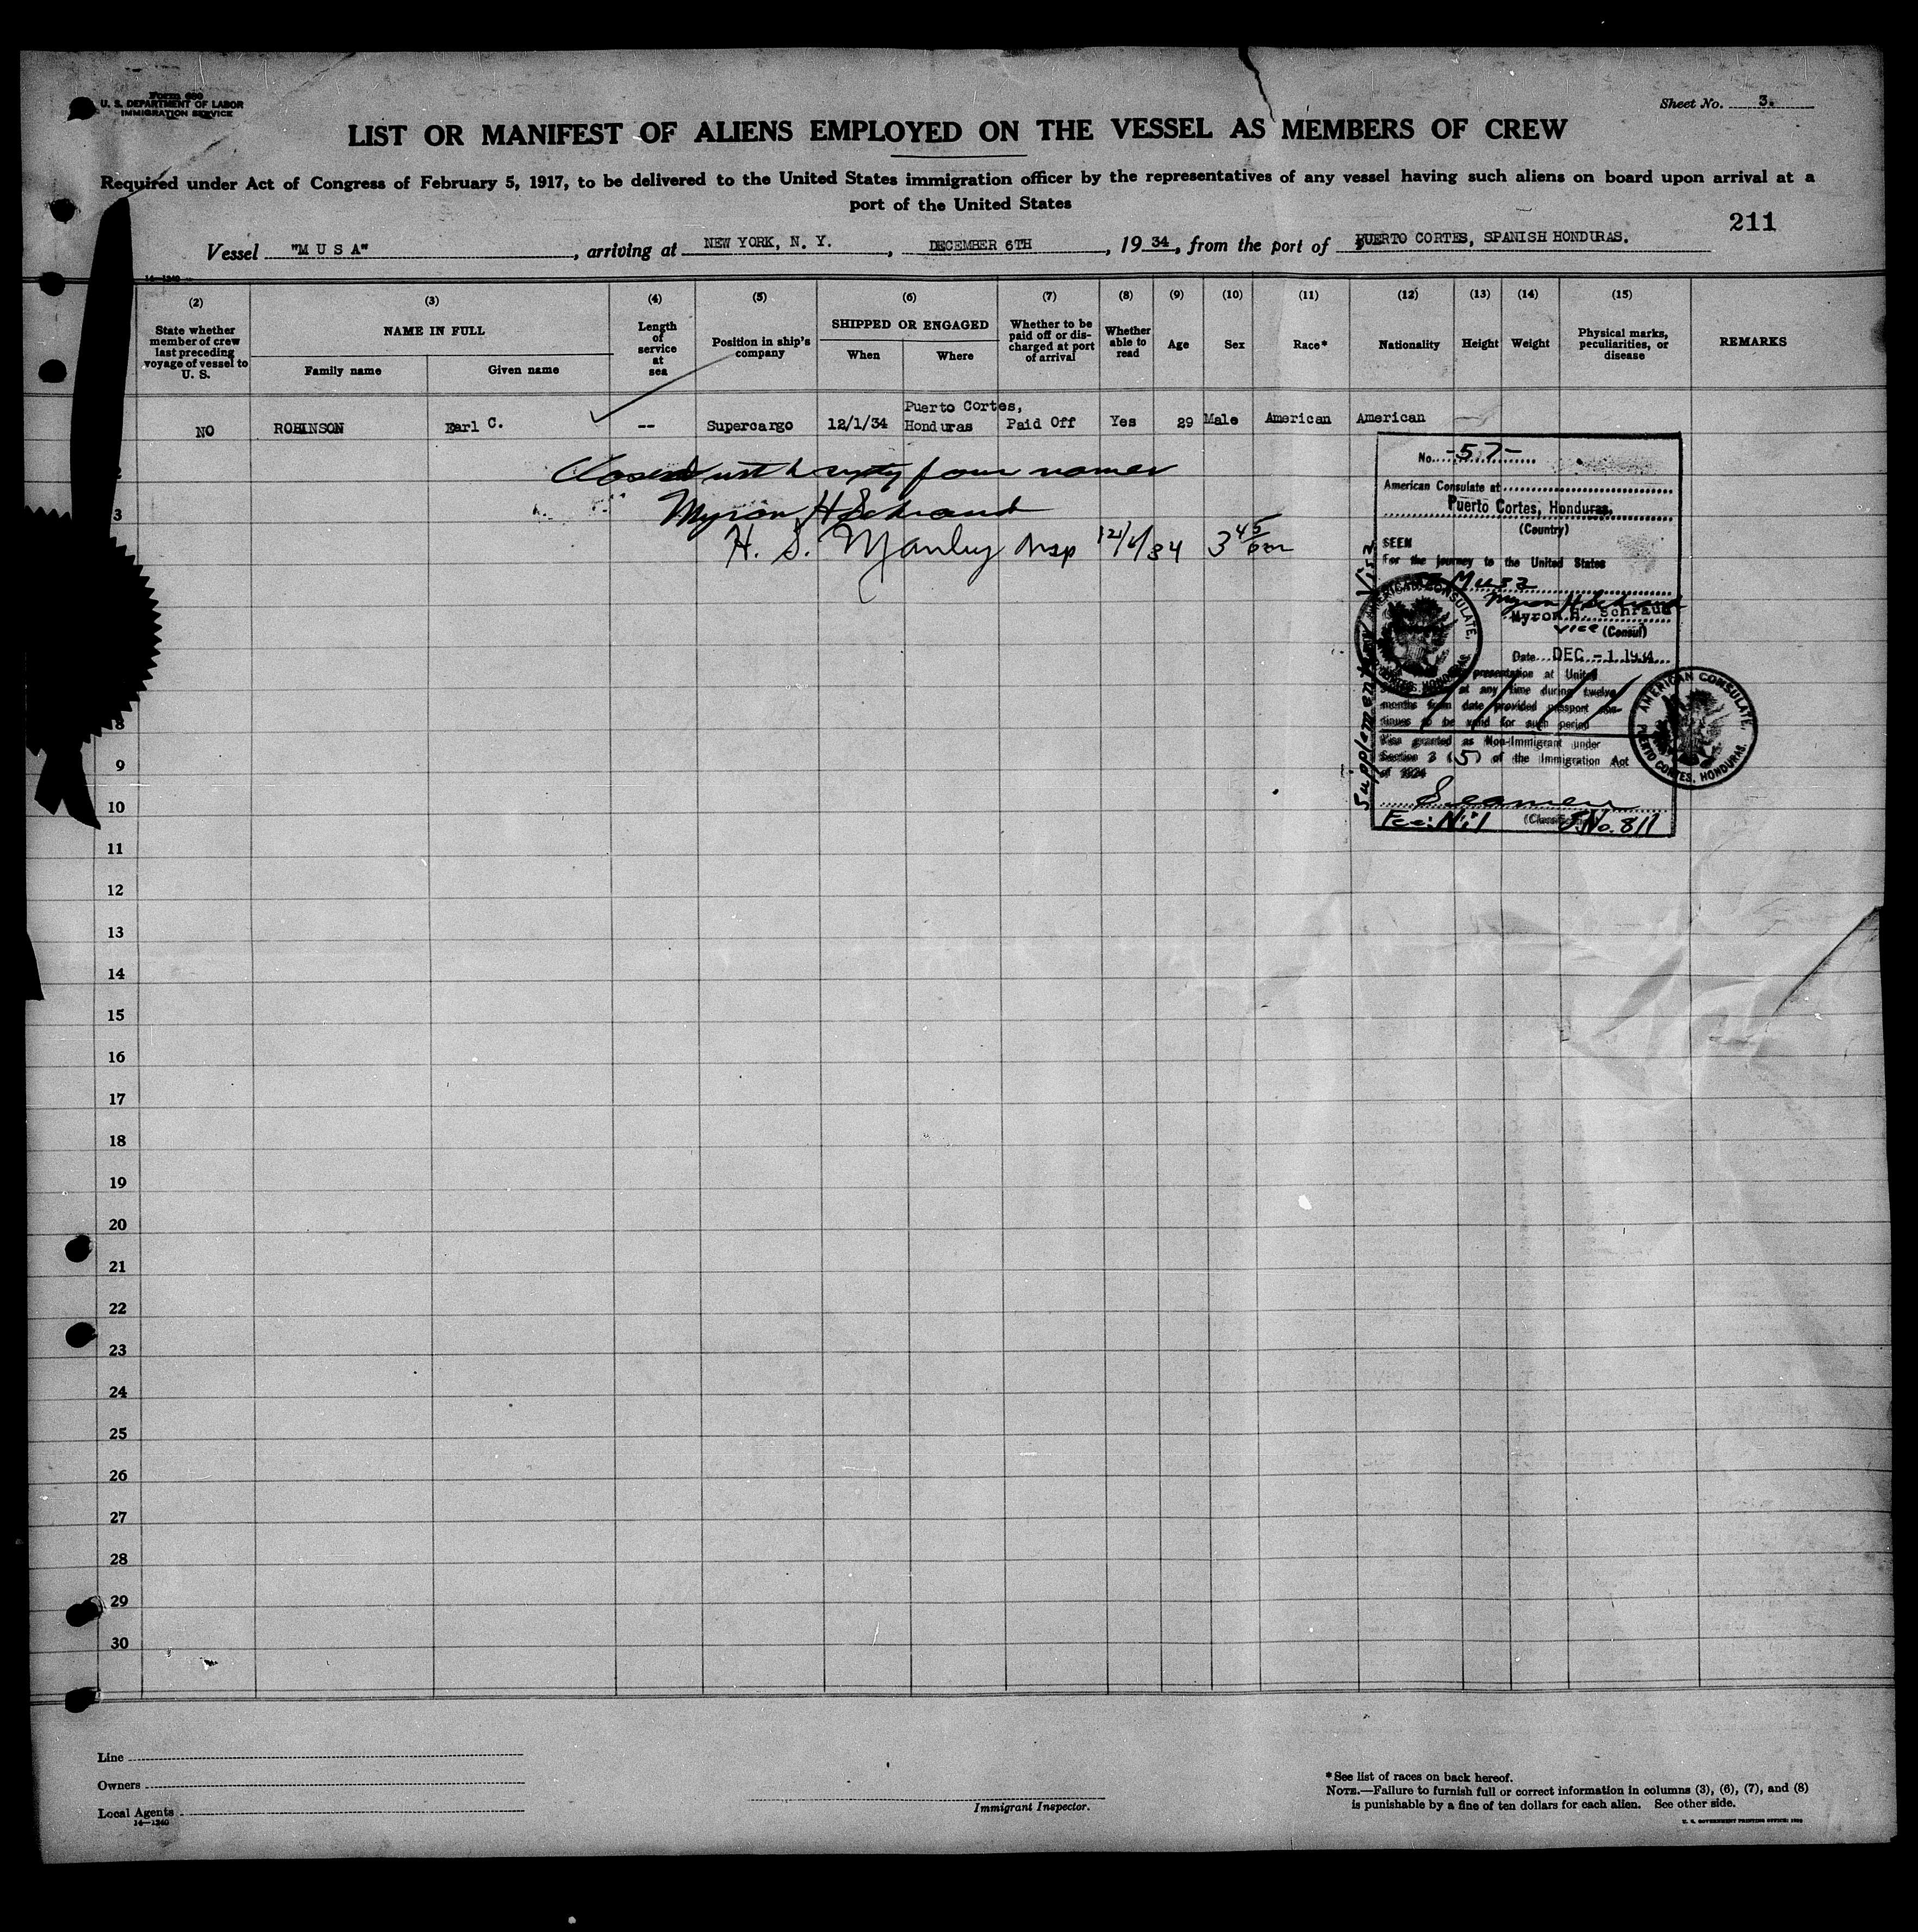 Form 680
U. S. DEPARTMENT OF LABOR
IMMIGRATION SERVICE
Sheet No. 3.
LIST OR MANIFEST OF ALIENS EMPLOYED ON THE VESSEL AS MEMBERS OF CREW
Required under Act of Congress of February 5, 1917, to be delivered to the United States immigration officer by the representatives of any vessel having such aliens on board upon arrival at a
port of the United States
211
Vessel "M U S A", arriving at NEW YORK, N. Y., DECEMBER 6TH, 1934, from the port of PUERTO CORTES, SPANISH HONDURAS.
14—1240
(2) (3) (4) (5) (6) (7) (8) (9) (10) (11) (12) (13) (14) (15)
State whether member of crew last preceding voyage of vessel to U. S.
NAME IN FULL
Family name
Given name
Length of service at sea
Position in ship's company
SHIPPED OR ENGAGED
When
Where
Whether to be paid off or discharged at port of arrival
Whether able to read
Age
Sex
Race*
Nationality
Height
Weight
Physical marks, peculiarities, or disease
REMARKS
NO ROBINSON Earl C. -- Supercargo 12/1/34 Puerto Cortes, Honduras Paid Off Yes 29 Male American American
Closed with sixty four names
Myron H Schraud
H. S. Manley Insp 12/6/34 3 45 pm
No. -57-
American Consulate at
Puerto Cortes, Honduras.
(Country)
SEEN
For the journey to the United States
Musa
Myron H Schraud
Myron H. Schraud
Vice (Consul)
Date DEC -1 1934
presentation at United
at any time during twelve
months from date provided passport con-
tinues to be valid for such period
Visa granted as Non-Immigrant under
Section 3 (5) of the Immigration Act
of 1924
Seamen
(Classification)
Fee: Nil
S.No. 811
Supplemental Visa
AMERICAN CONSULATE, PUERTO CORTES, HONDURAS.
AMERICAN CONSULATE, PUERTO CORTES, HONDURAS.
3
8
9
10
11
12
13
14
15
16
17
18
19
20
21
22
23
24
25
26
27
28
29
30
Line
Owners
Local Agents
14—1240
Immigrant Inspector.
*See list of races on back hereof.
NOTE.—Failure to furnish full or correct information in columns (3), (6), (7), and (8)
is punishable by a fine of ten dollars for each alien. See other side.
U. S. GOVERNMENT PRINTING OFFICE: